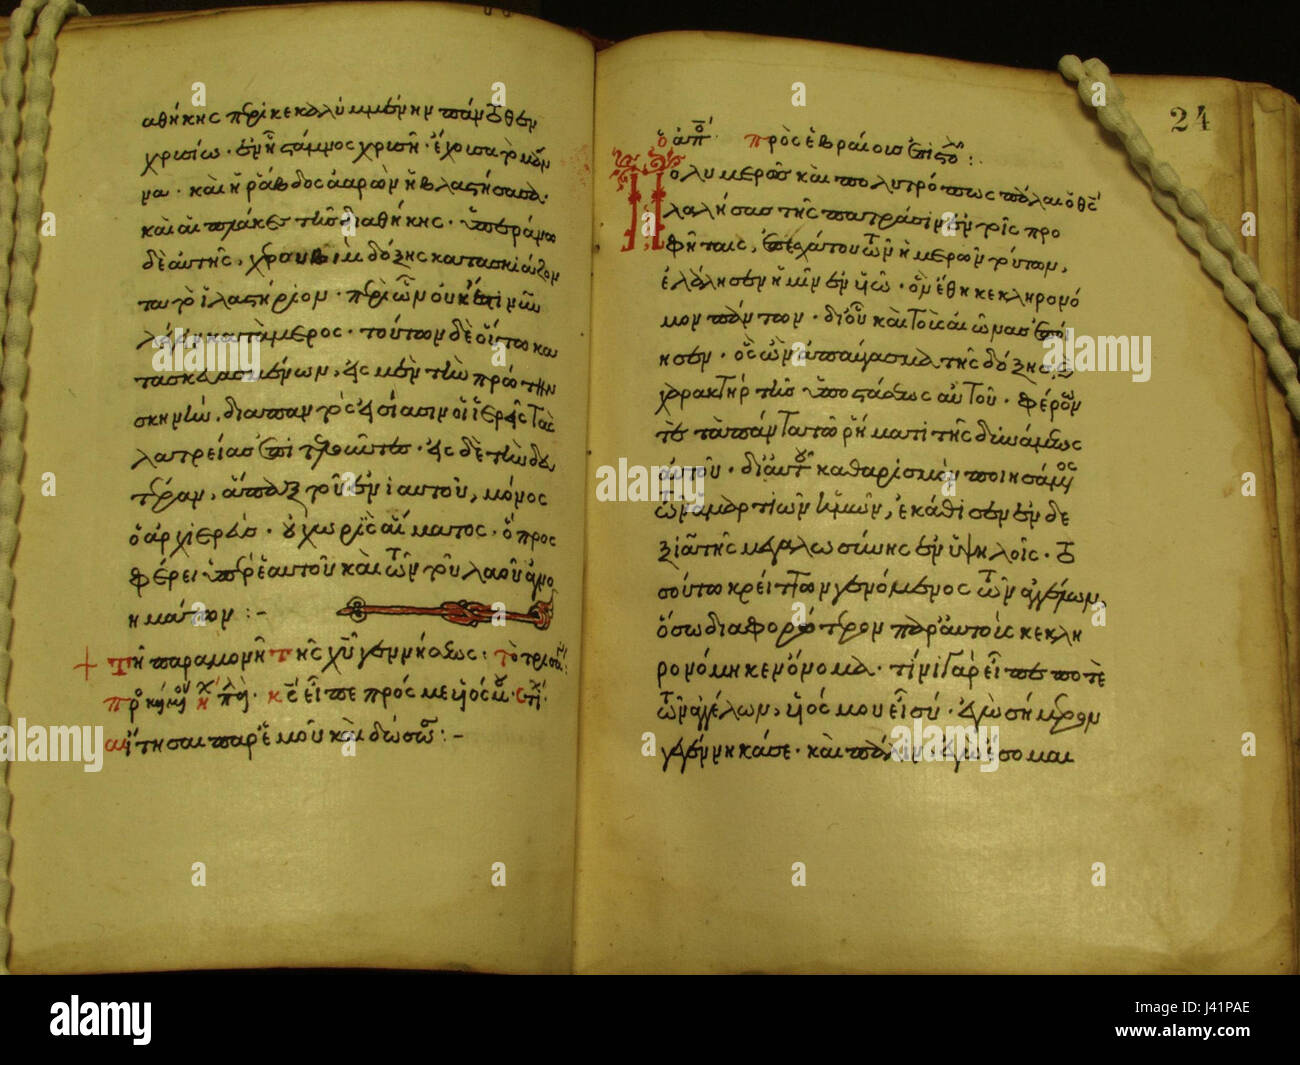 αθήκης περικεκαλυμμένην πάντοθεν
χρυσίω· ἐν ἧ στάμνος χρυσῆ· ἔχουσα τὸ μάν
να· καὶ ἡ ῥάβδος ἀαρὼν ἡ βλαστήσασα·
καὶ αἱ πλάκες τῆς διαθήκης· ὑπεράνω
δὲ αὐτῆς, χερουβὶμ δόξης κατασκιάζον
τα τὸ ἱλαστήριον· περὶ ὧν οὐκ ἔστι νῦν
λέγειν κατὰ μέρος· τούτων δὲ οὕτω κα
τασκευασμένων, εἰς μὲν τὴν πρώτην
σκηνὴν, διαπαντὸς εἰσίασιν οἱ ἱερεῖς τὰς
λατρείας ἐπιτελοῦντες· εἰς δὲ τὴν δευ
τέραν, ἅπαξ τοῦ ἐνιαυτοῦ, μόνος
ὁ ἀρχιερεύς· οὐ χωρὶς αἵματος· ὃ προσ
φέρει ὑπὲρ ἑαυτοῦ καὶ τῶν τοῦ λαοῦ ἀγνο
ημάτων :-
+ Τῆ παραμονῆ τῆς χυ γεννήσεως·
κς εἶπε πρός με υἱός μου· στι.
αἴτησαι παρ' ἐμοῦ καὶ δώσω :-
24
ὁ ἀπο. πρὸς ἑβραίους ἐπιστολ :.
Πολυμερῶς καὶ πολυτρόπως πάλαι ὁ θς
λαλήσας τοῖς πατράσιν ἐν τοῖς προ
φήταις, ἐπ' ἐσχάτου τῶν ἡμερῶν τούτων,
ἐλάλησεν ἡμῖν ἐν υἱῶ· ὃν ἔθηκε κληρονό
μον πάντων· δι' οὗ καὶ τοὺς αἰῶνας ἐποί
ησεν· ὃς ὢν ἀπαύγασμα τῆς δόξης, καὶ
χαρακτὴρ τῆς ὑποστάσεως αὐτοῦ· φέρων
τε τὰ πάντα τῶ ῥήματι τῆς δυνάμεως
αὐτοῦ· δι' αὑτοῦ καθαρισμὸν ποιησάμενος
τῶν ἁμαρτιῶν ἡμῶν, ἐκάθισεν ἐν δε
ξιᾶ τῆς μεγαλωσύνης ἐν ὑψηλοῖς· το
σούτω κρείττων γενόμενος τῶν ἀγγέλων,
ὅσω διαφορώτερον παρ' αὐτοὺς κεκλη
ρονόμηκεν ὄνομα· τίνι γὰρ εἶπέ ποτε
τῶν ἀγγέλων, υἱός μου εἶ σύ· ἐγὼ σήμερον
γεγέννηκά σε· καὶ πάλιν· ἐγὼ ἔσομαι
alamy
Image ID: J41PAE
www.alamy.com